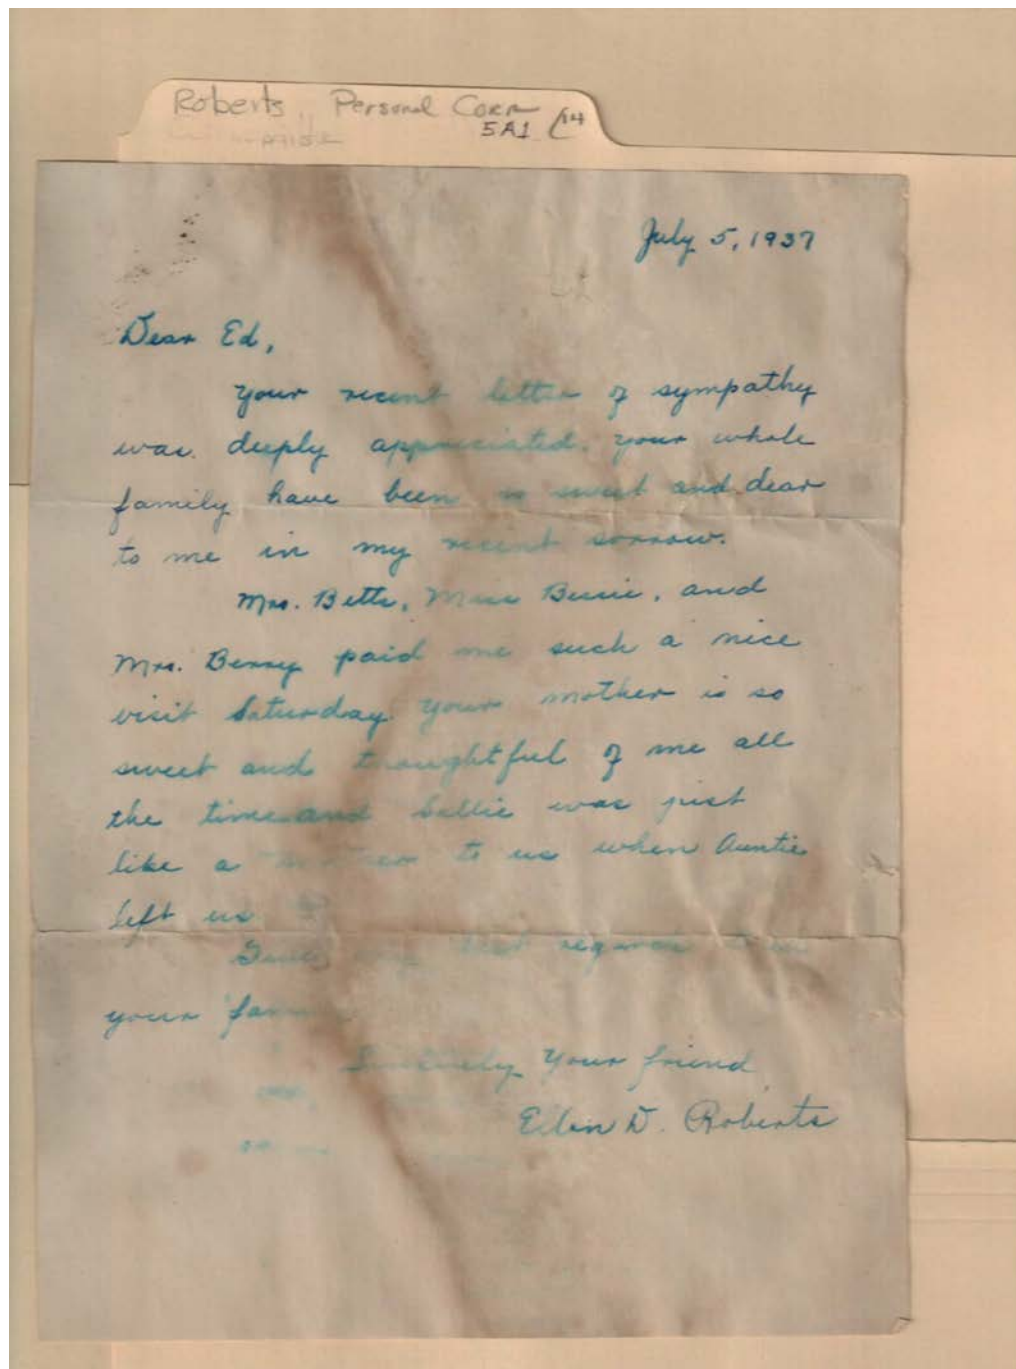 Roberts, Personal Corr
5A1
July 5, 1937
Dear Ed,
Your recent letter of sympathy
was deeply appreciated. Your whole
family have been so sweet and dear
to me in my recent sorrow.
Mrs. Betts, Miss Bessie, and
Mrs. Berry paid me such a nice
visit Saturday. Your mother is so
sweet and thoughtful of me all
the time and Sallie was just
like a mother to us when Auntie
left us
best regards
your
Sincerely Your friend
D. Roberts